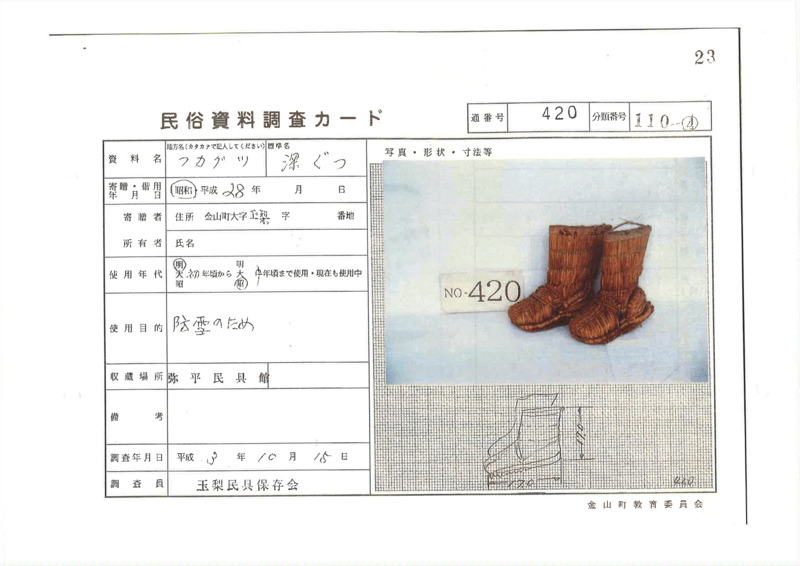 23
民俗資料調査カード
通番号 420 分類番号 110-④
資料名 地方名(カタカナで記入してください) フカグツ 標準名 深ぐつ
寄贈・借用年月日 昭和・平成 28年 月 日
寄贈者 住所 金山町大字玉梨字 番地
所有者 氏名
使用年代 明大昭 初年頃から 明大昭 中年頃まで使用・現在も使用中
使用目的 防雪のため
収蔵場所 弥平民具館
備考
調査年月日 平成 3年 10月 15日
調査員 玉梨民具保存会
写真・形状・寸法等
NO-420
17.0
17.0
420
金山町教育委員会